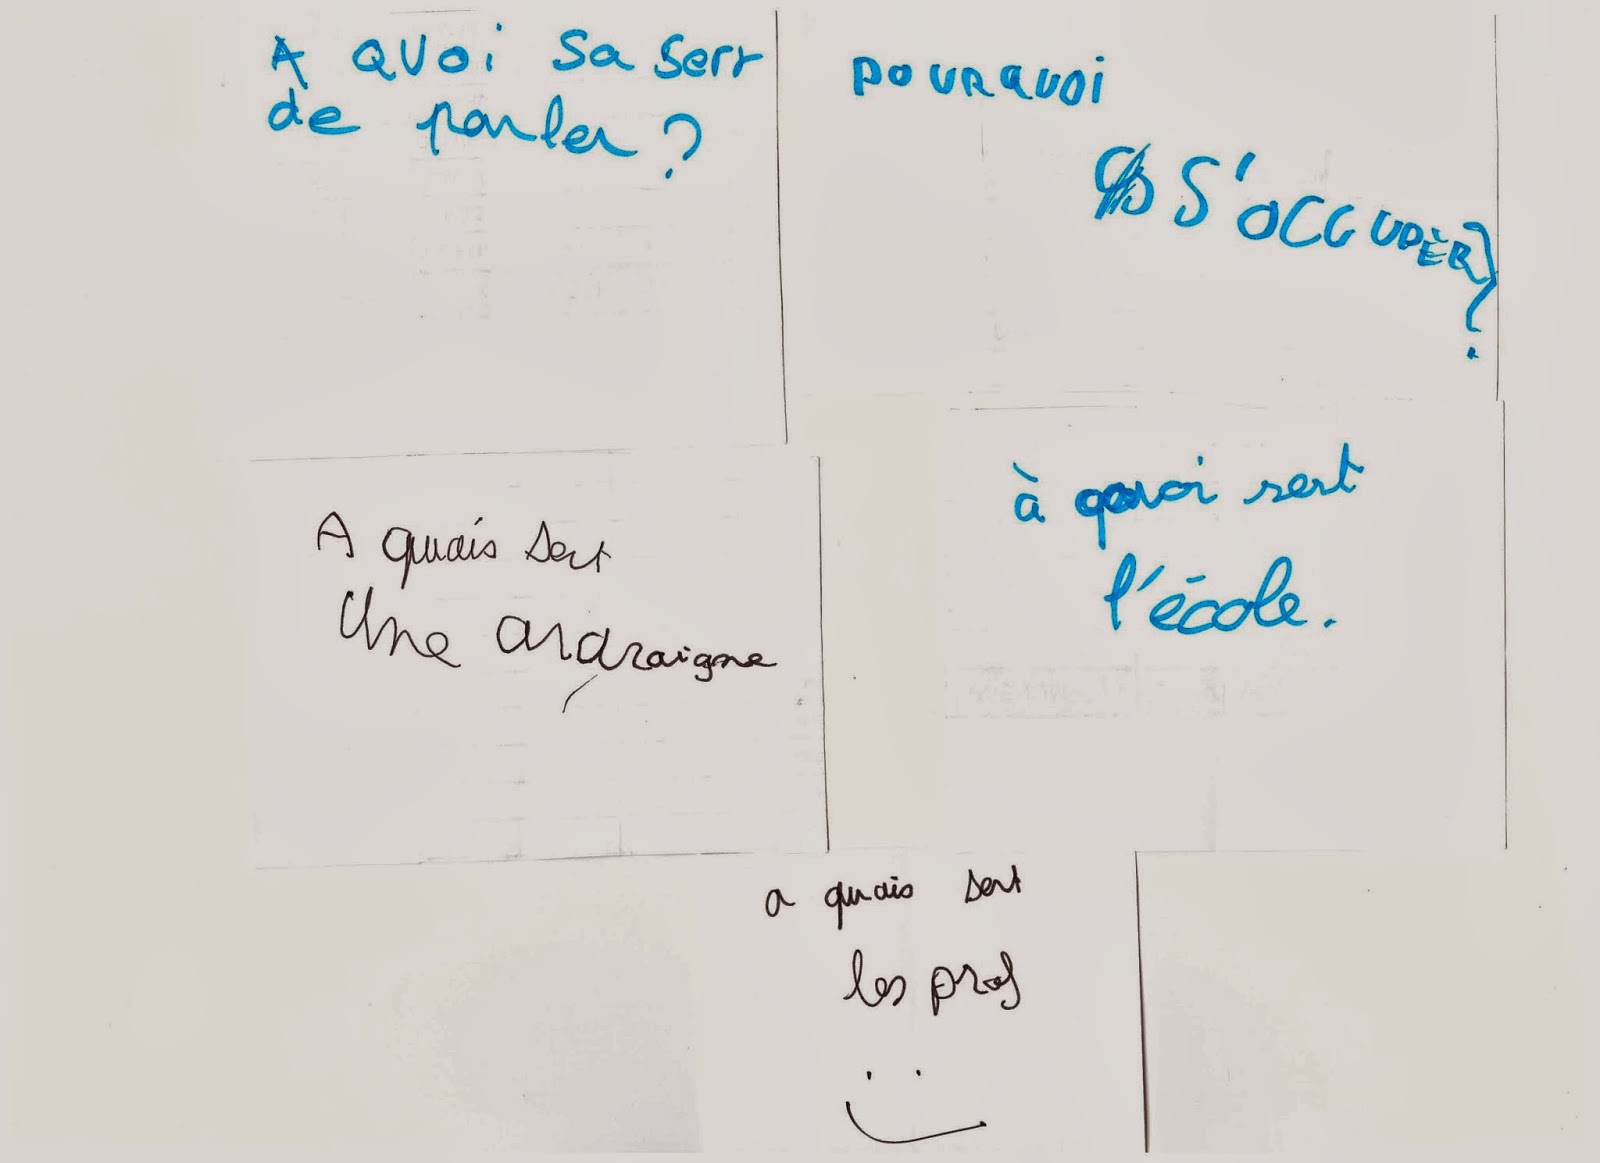 A QUOi Sa Sert
de parler ?
POURQUOi
S'OCCUPÈR ?
A quais sert
Une ardraigne
à quoi sert
l'école.
a quais sert
les prof